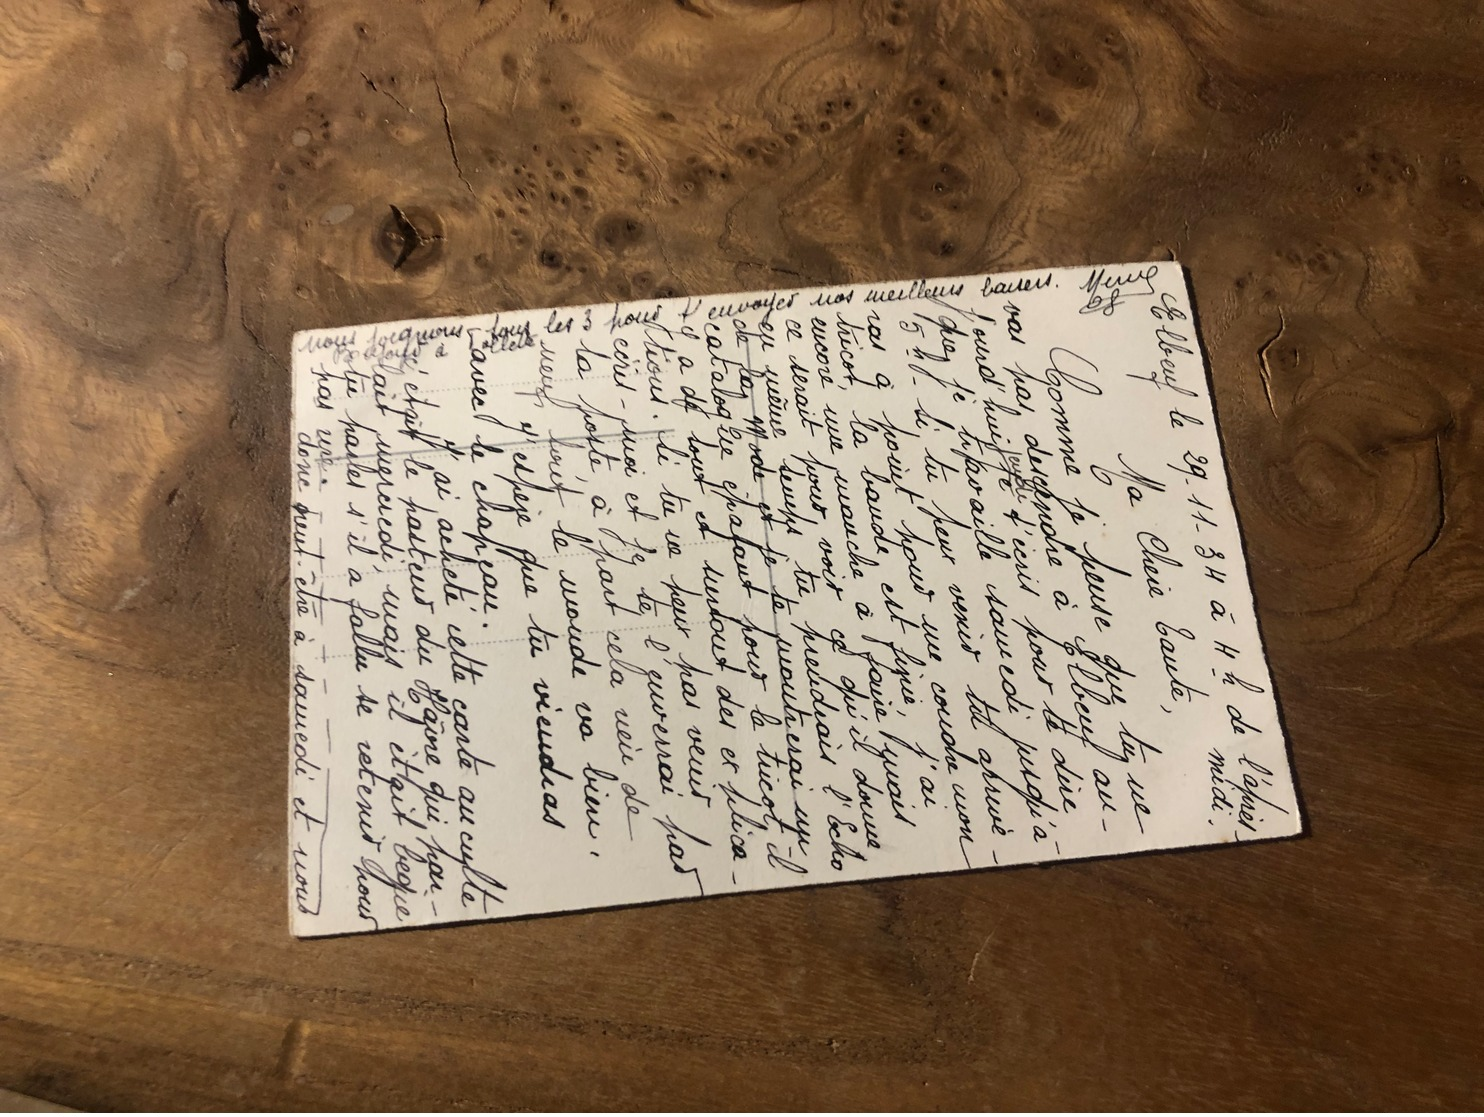 Elbeuf le 29-11-34 à 4h de l'après
midi.
Ma Chère Tante,
Comme je pense que tu ne
vas pas descendre à Elbeuf au-
jourd'hui jeudi je t'écris pour te dire
que je travaille samedi jusqu'à
5h si tu peux venir tu arrive-
ras à point pour me coudre mon
tricot, la bande est finie, j'ai
encore une manche à faire mais
ce serait pour voir ce qu'il donne
en même temps tu prendrais l'Echo
de la Mode et je te montrerai un
catalogue épatant pour le tricot il
y a de tout et surtout des explica-
tions. Si tu ne peux pas venir
écris-moi et je te l'enverrai par
la poste à part cela rien de
neuf, tout le monde va bien.
J'espère que tu viendras
avec le chapeau.
J'ai acheté cette carte au culte
c'était le pasteur du Hâvre qui par-
lait mercredi, mais il était bègue
tu parles s'il a fallu se retenir pour
pas rire.
donc peut-être à samedi et nous
nous joignons tous les 3 pour t'envoyer nos meilleurs baisers.
Bonjour à